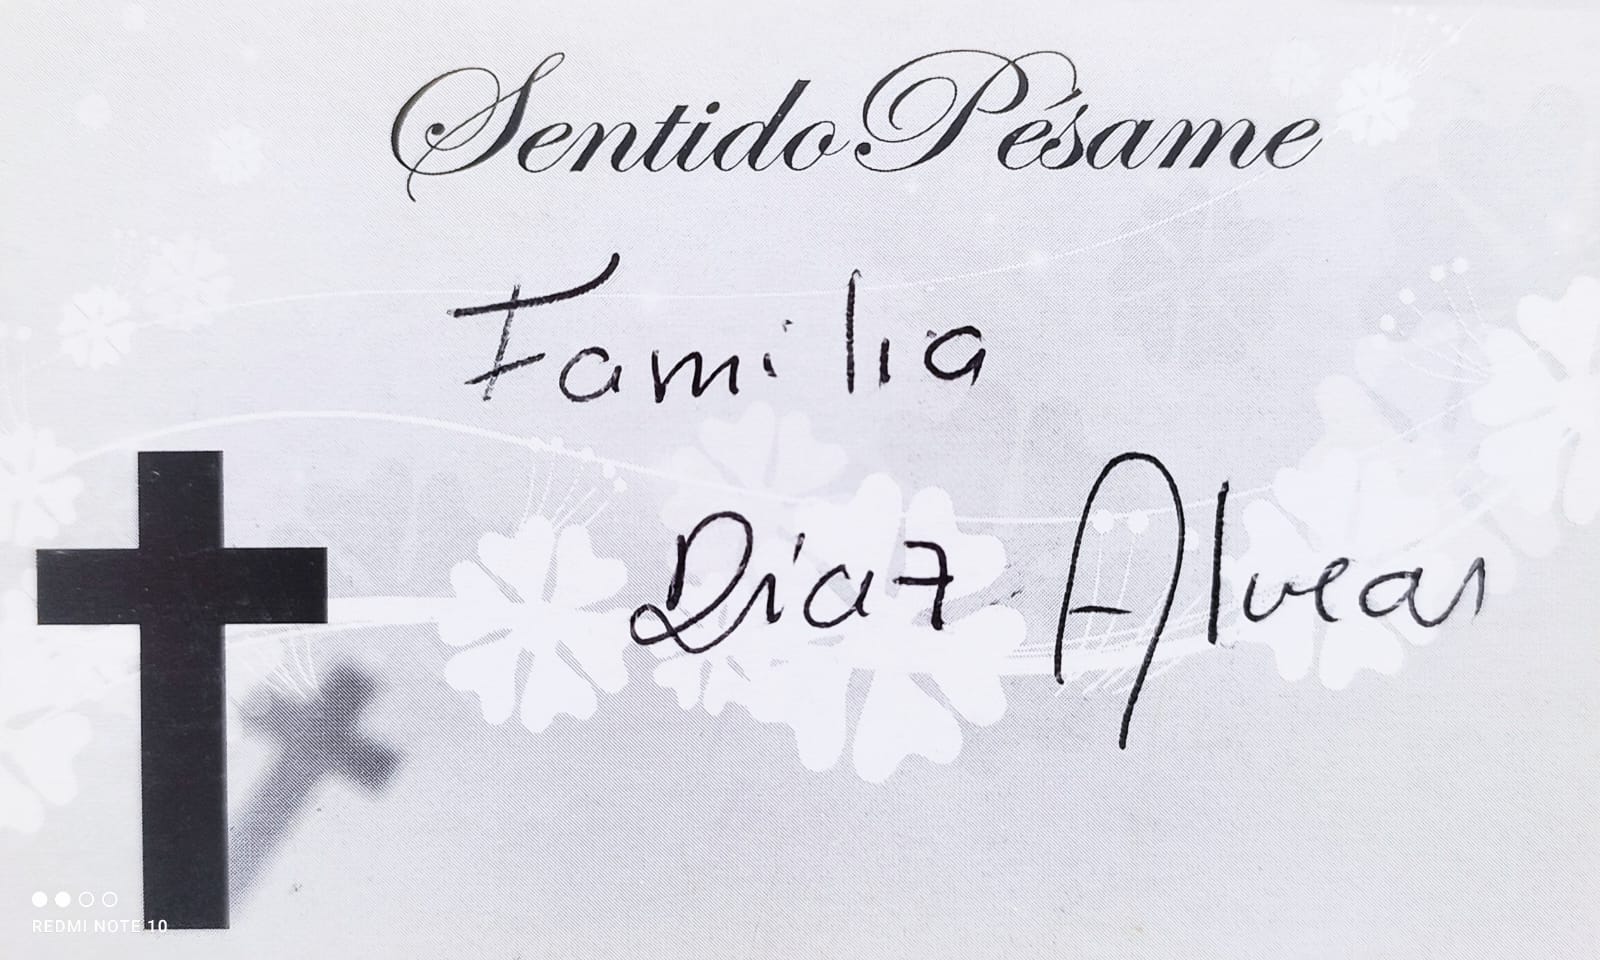 Sentido Pésame
Familia
Díaz Alvear
REDMI NOTE 10